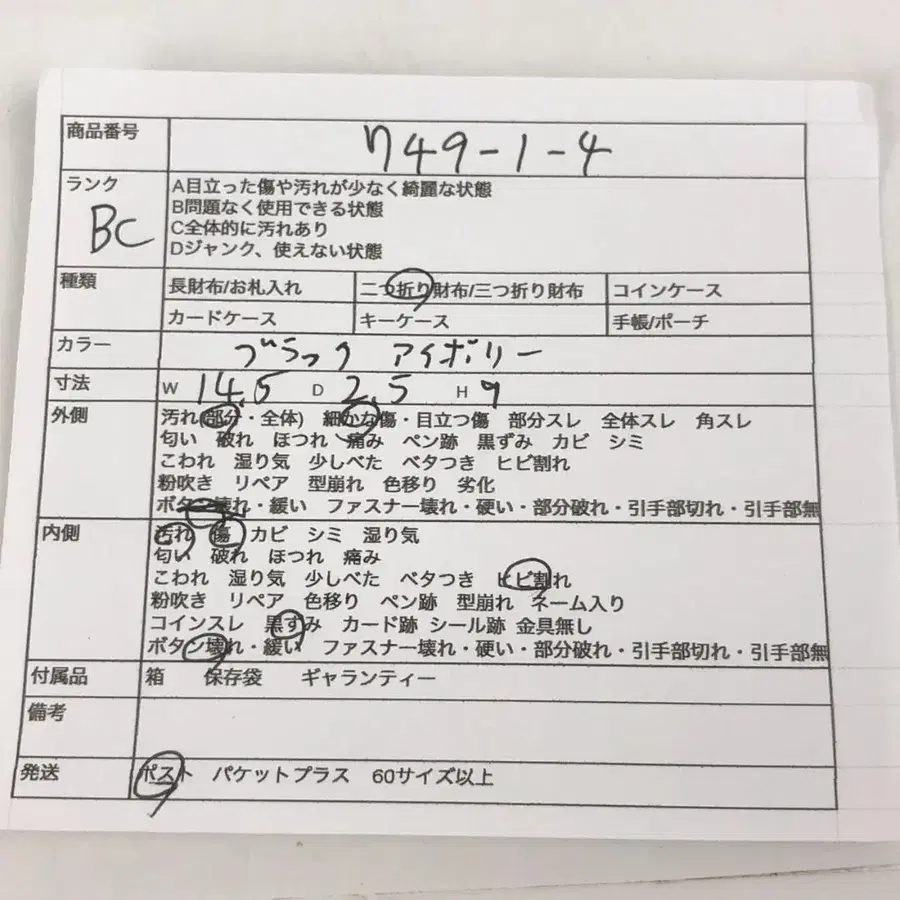 商品番号 749-1-4
ランク BC A目立った傷や汚れが少なく綺麗な状態
B問題なく使用できる状態
C全体的に汚れあり
Dジャンク、使えない状態
種類 長財布/お札入れ 二つ折り財布/三つ折り財布 コインケース
カードケース キーケース 手帳/ポーチ
カラー ブラック アイボリー
寸法 W 14.5 D 2.5 H 9
外側 汚れ(部分・全体) 細かな傷・目立つ傷 部分スレ 全体スレ 角スレ
匂い 破れ ほつれ 痛み ペン跡 黒ずみ カビ シミ
こわれ 湿り気 少しべた ベタつき ヒビ割れ
粉吹き リペア 型崩れ 色移り 劣化
ボタン壊れ・緩い ファスナー壊れ・硬い・部分破れ・引手部切れ・引手部無
内側 汚れ 傷 カビ シミ 湿り気
匂い 破れ ほつれ 痛み
こわれ 湿り気 少しべた ベタつき ヒビ割れ
粉吹き リペア 色移り ペン跡 型崩れ ネーム入り
コインスレ 黒ずみ カード跡 シール跡 金具無し
ボタン壊れ・緩い ファスナー壊れ・硬い・部分破れ・引手部切れ・引手部無
付属品 箱 保存袋 ギャランティー
備考
発送 ポスト パケットプラス 60サイズ以上